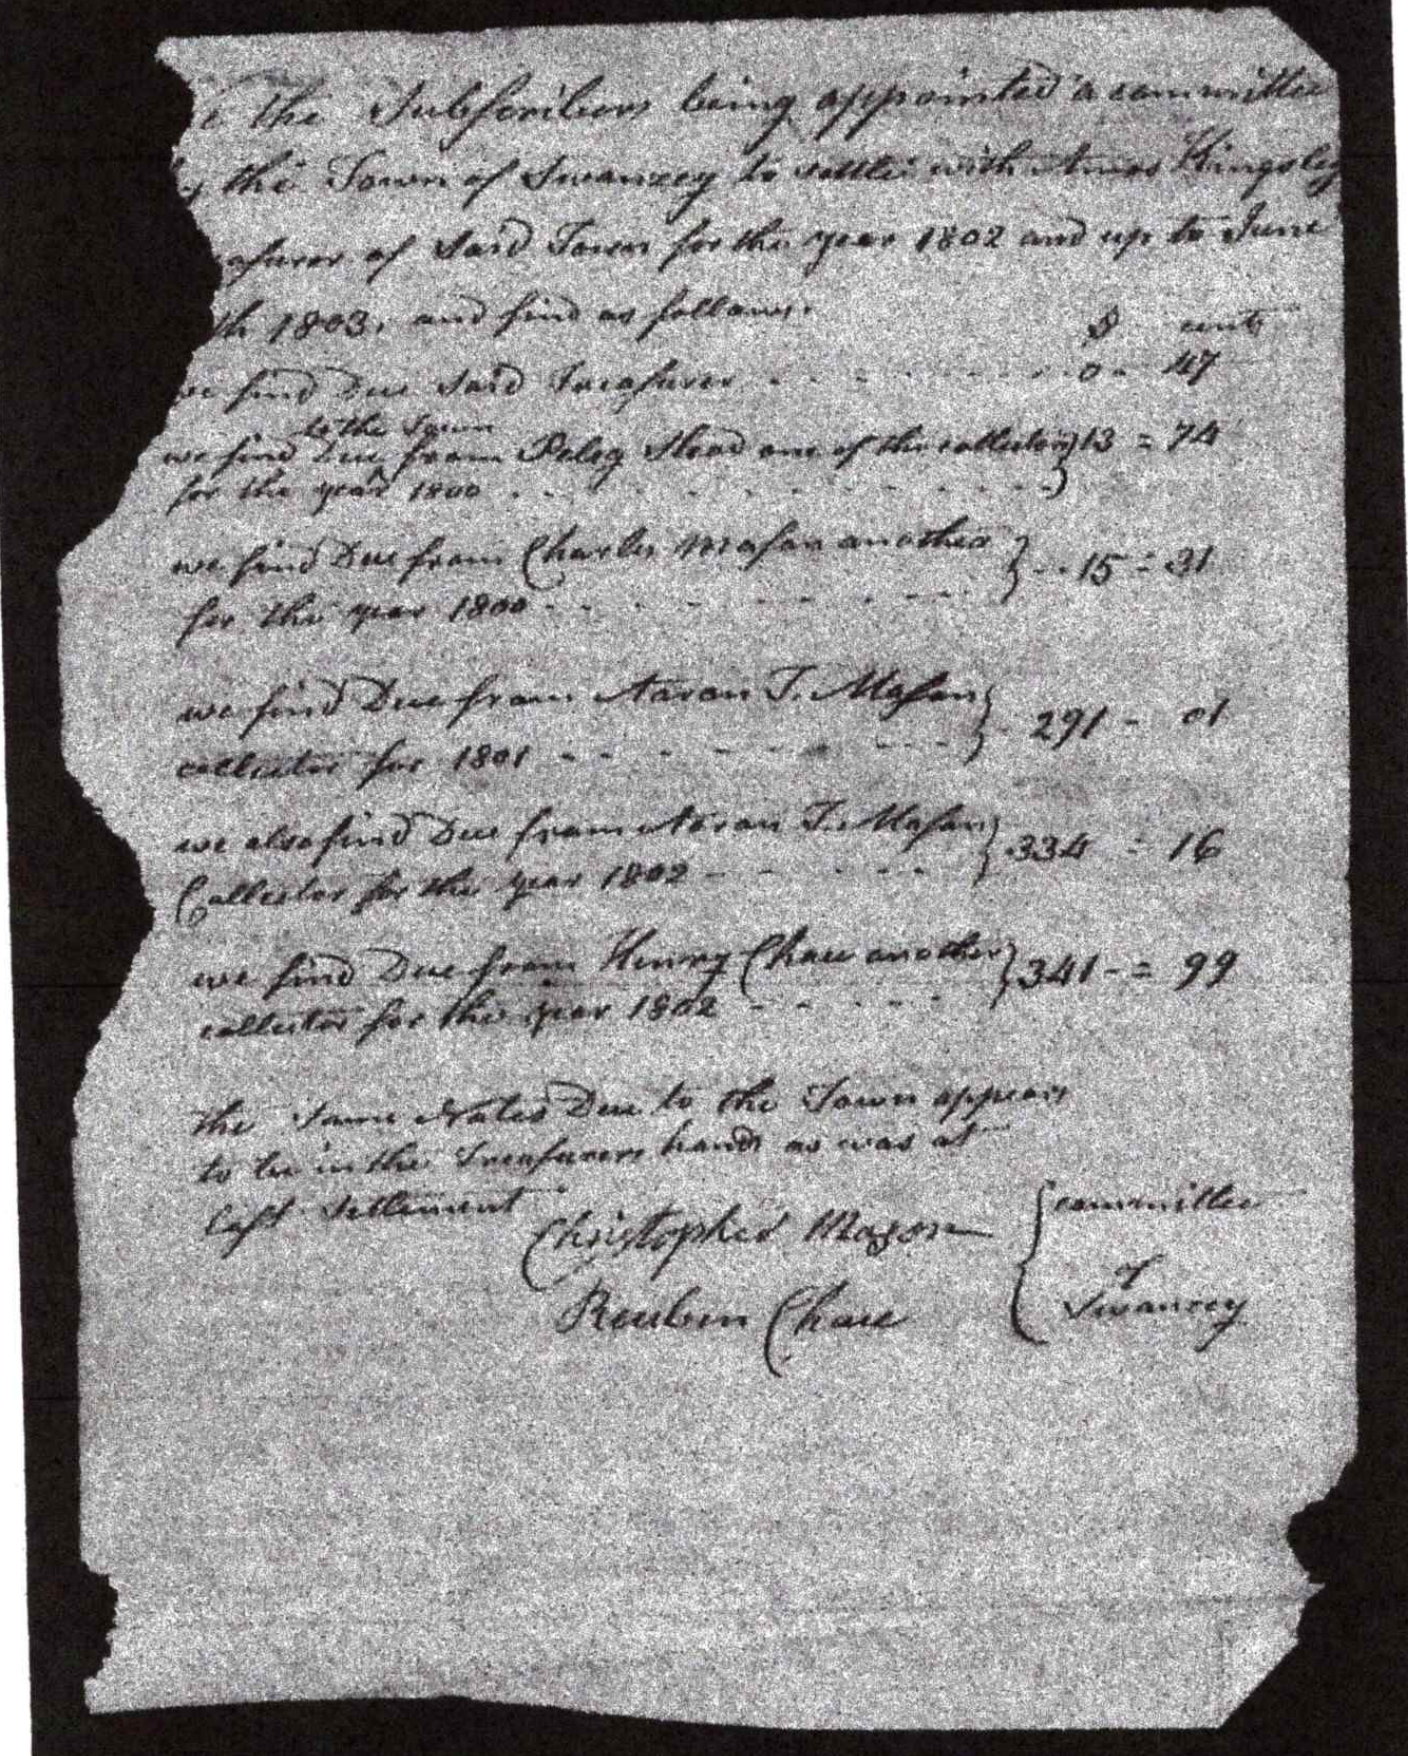 e the Subscribers being appointed a committee
y the Town of Swanzey to settle with Amos Kingsley
asurer of Said Town for the year 1802 and up to June
th 1803, and find as follows.
$ cents
we find Due Said Treasurer - - - - - - - 0 - 47
to the Town
we find Due ^ from Peleg Slead one of the collectors } 13 = 74
for the year 1800 - - - - - - - - -
we find Due from Charles Mason another } - - 15 = 31
for the year 1800 - - - - - - - -
we find Due from Aaron T. Mason } 291 - 01
collector for 1801 - - - - - - - -
we also find Due from Aaron T. Mason } 334 = 16
Collector for the year 1802 - - - - - -
we find Due from Henry Chace another } 341 - = 99
collector for the year 1802 - - - - -
the Same Notes Due to the Town appears
to be in the Treasurers hands as was at
last Settlement
Christopher Mason { committee
of
Reuben Chace Swanzey